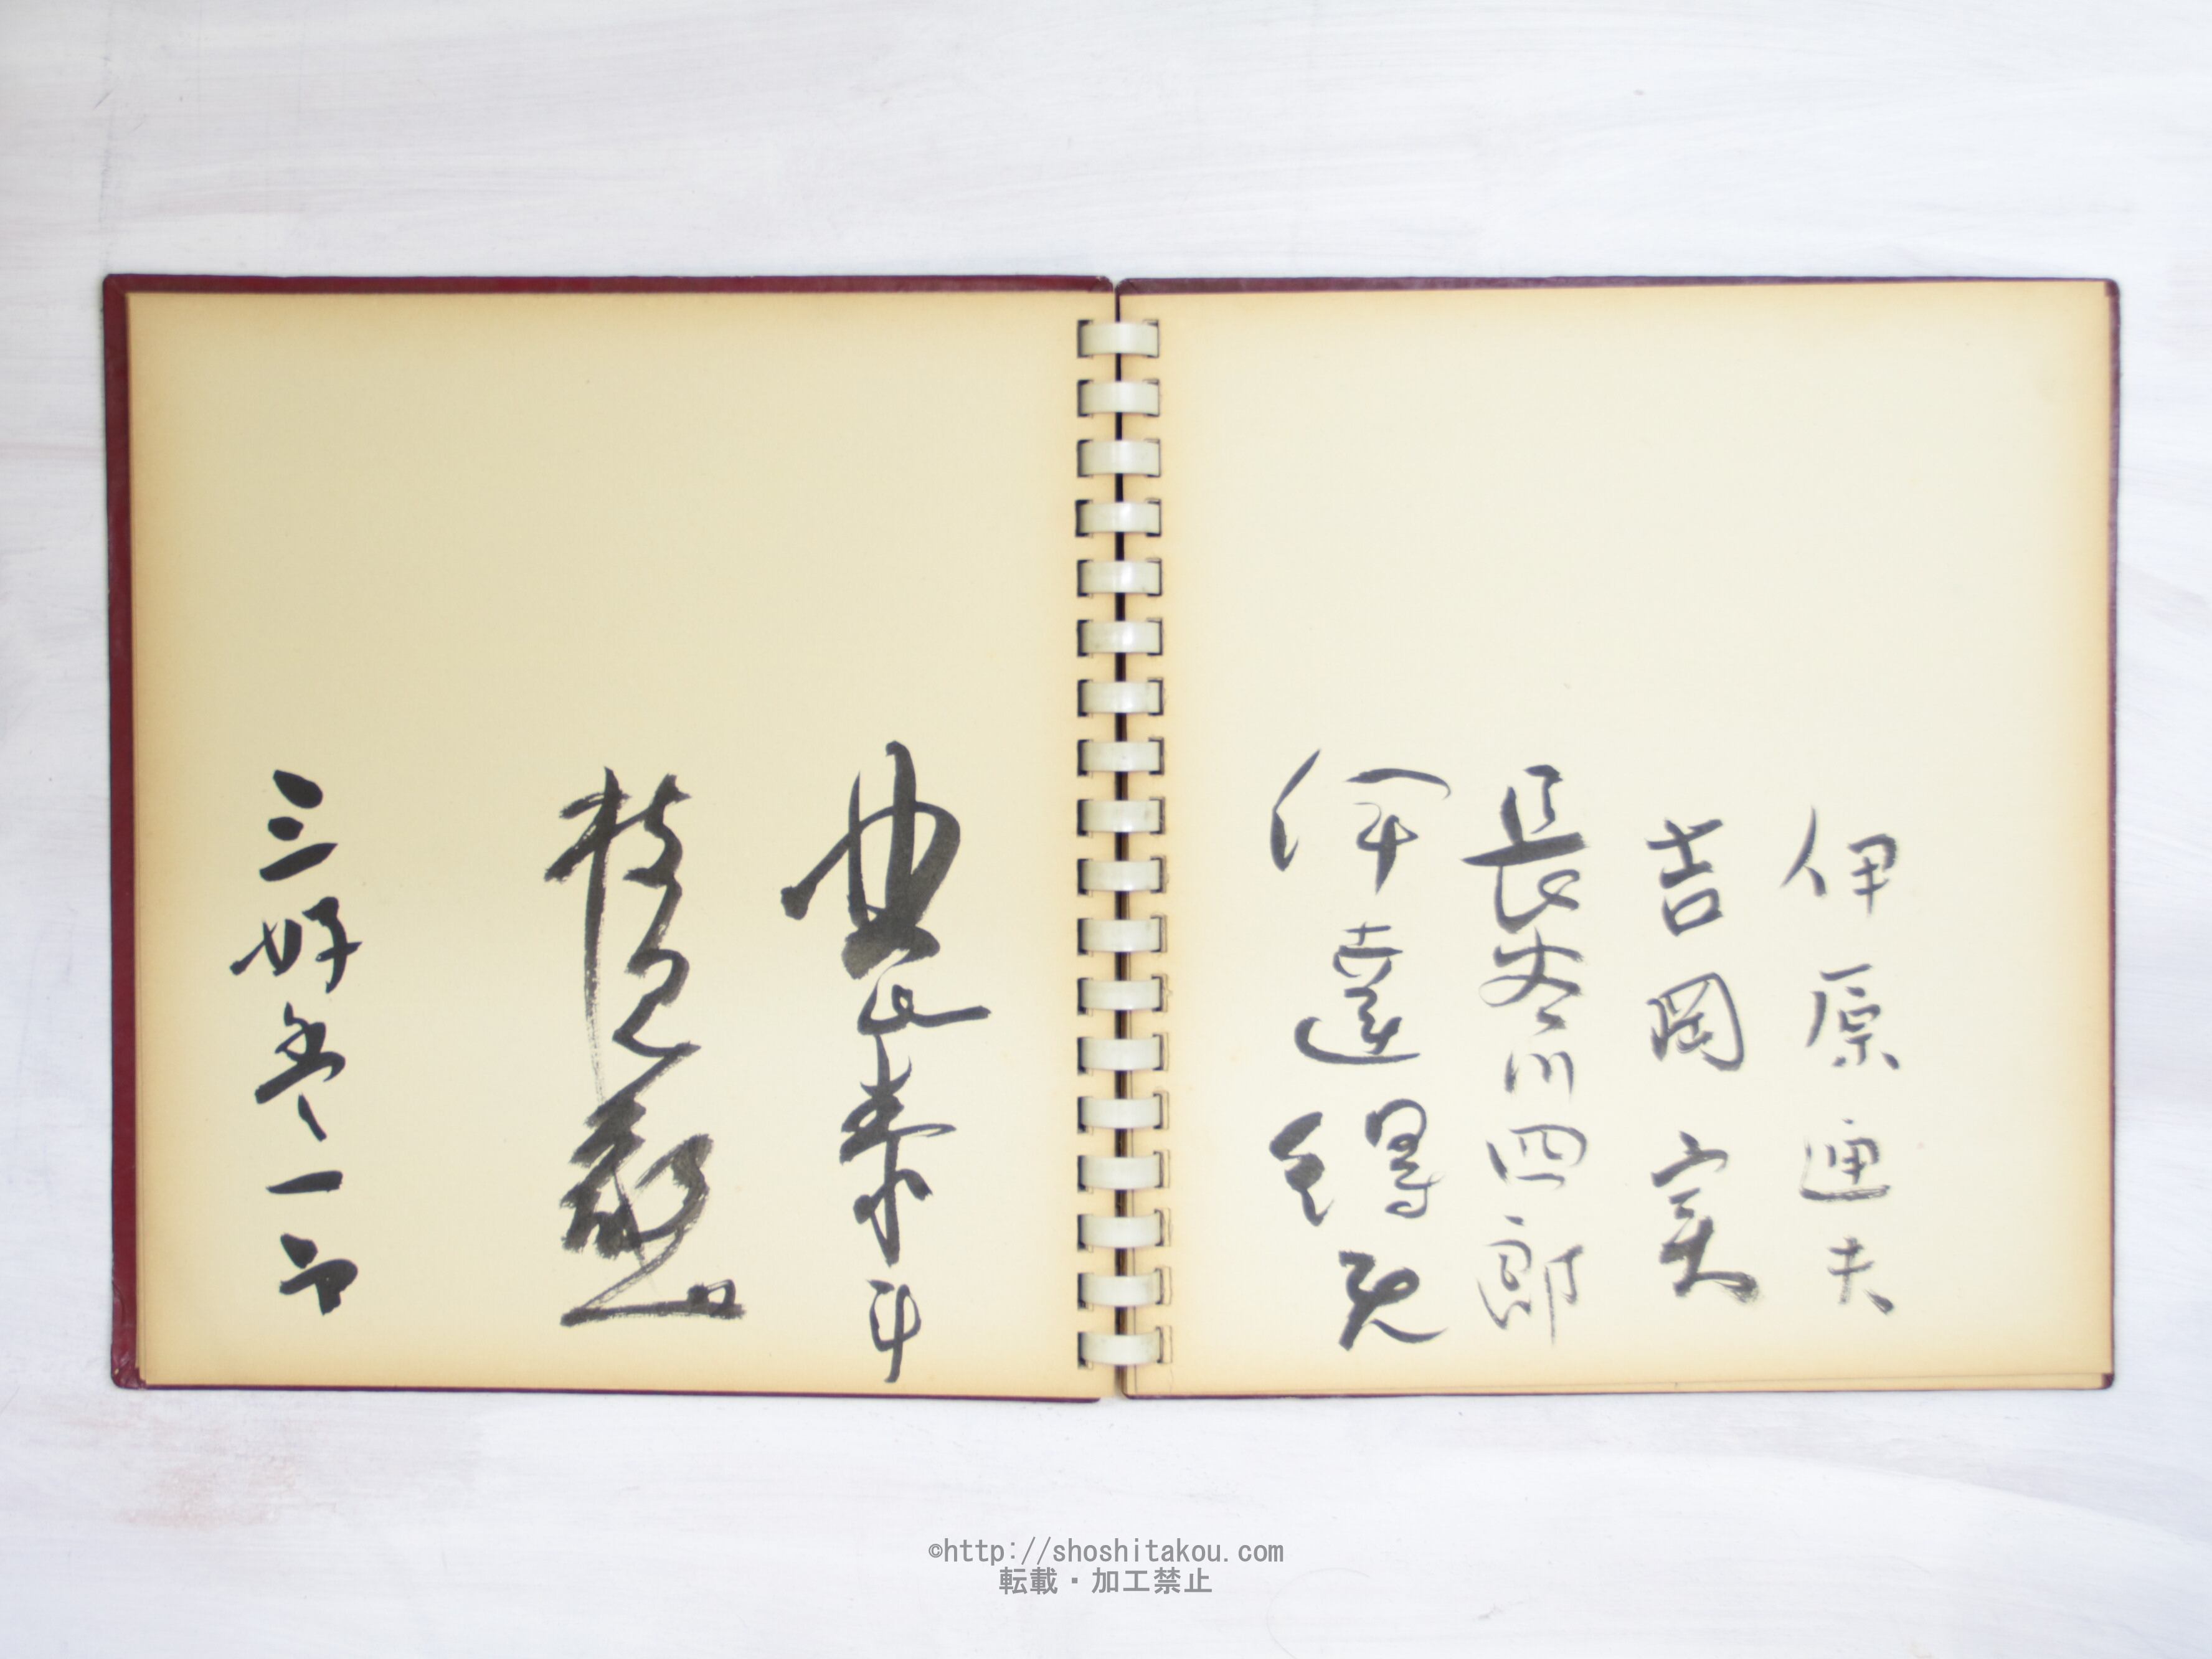 伊原通夫
吉岡実
長谷川四郎
伊達得夫
三好豊一郎
©http://shoshitakou.com
転載・加工禁止